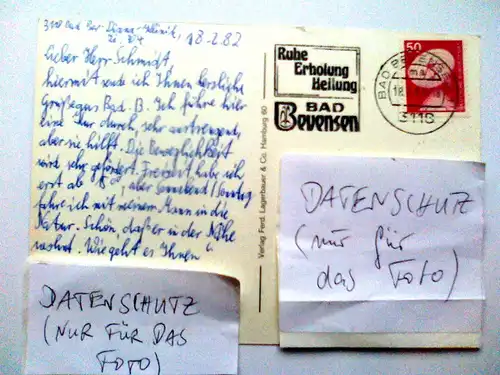 3118 Bad Bev. Diana-Klinik,
18.2.82
Lieber Herr Schmidt,
hiermit sende ich Ihnen herzliche
Grüße aus Bad. B. Ich führe hier
eine Kur durch, sehr anstrengend,
aber sie hilft. Die Beweglichkeit
wird sehr gefördert. Freizeit habe ich
erst ab 18°°, aber Sonnabend/Sonntag
fahre ich mit meinem Mann in die
Natur. Schön, daß er in der Nähe
wohnt. Wie geht es Ihnen
Verlag Ferd. Lagerbauer & Co. Hamburg 60
Ruhe
Erholung
Heilung
BAD
Bevensen
50
BAD BEVENSEN
ma
18.
3118
DATENSCHUTZ
(nur für
das Foto)
DATENSCHUTZ
(NUR FÜR DAS
FOTO)